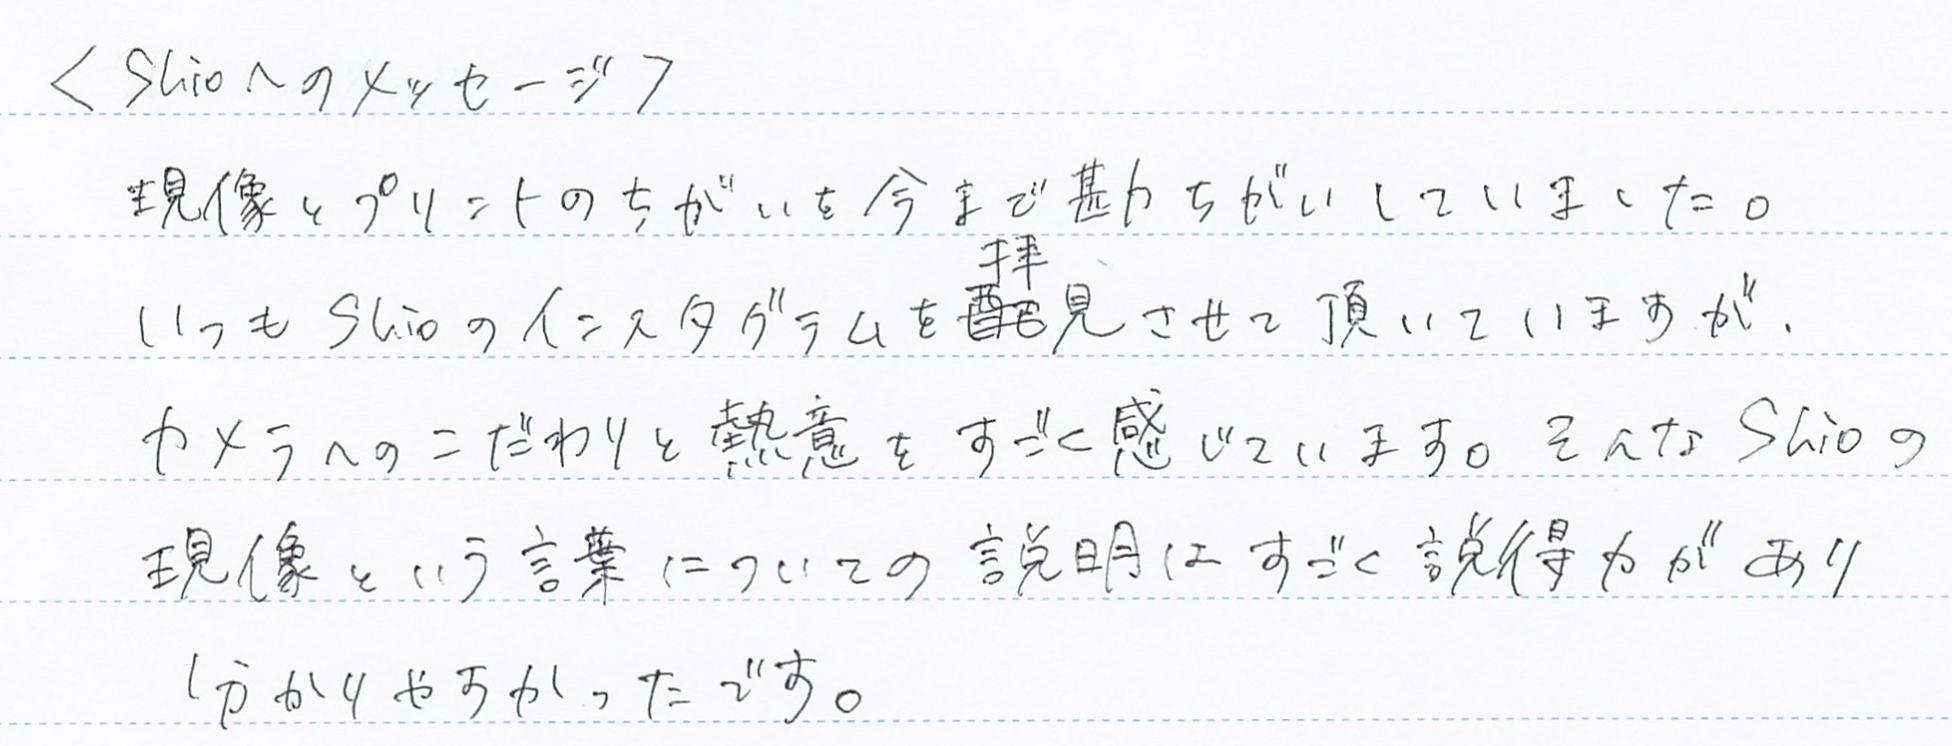 <Shioへのメッセージ>
現像とプリントのちがいを今まで勘ちがいしていました。
いつもShioのインスタグラムを拝見させて頂いていますが、
カメラへのこだわりと熱意をすごく感じています。そんなShioの
現像という言葉についての説明はすごく説得力があり
分かりやすかったです。